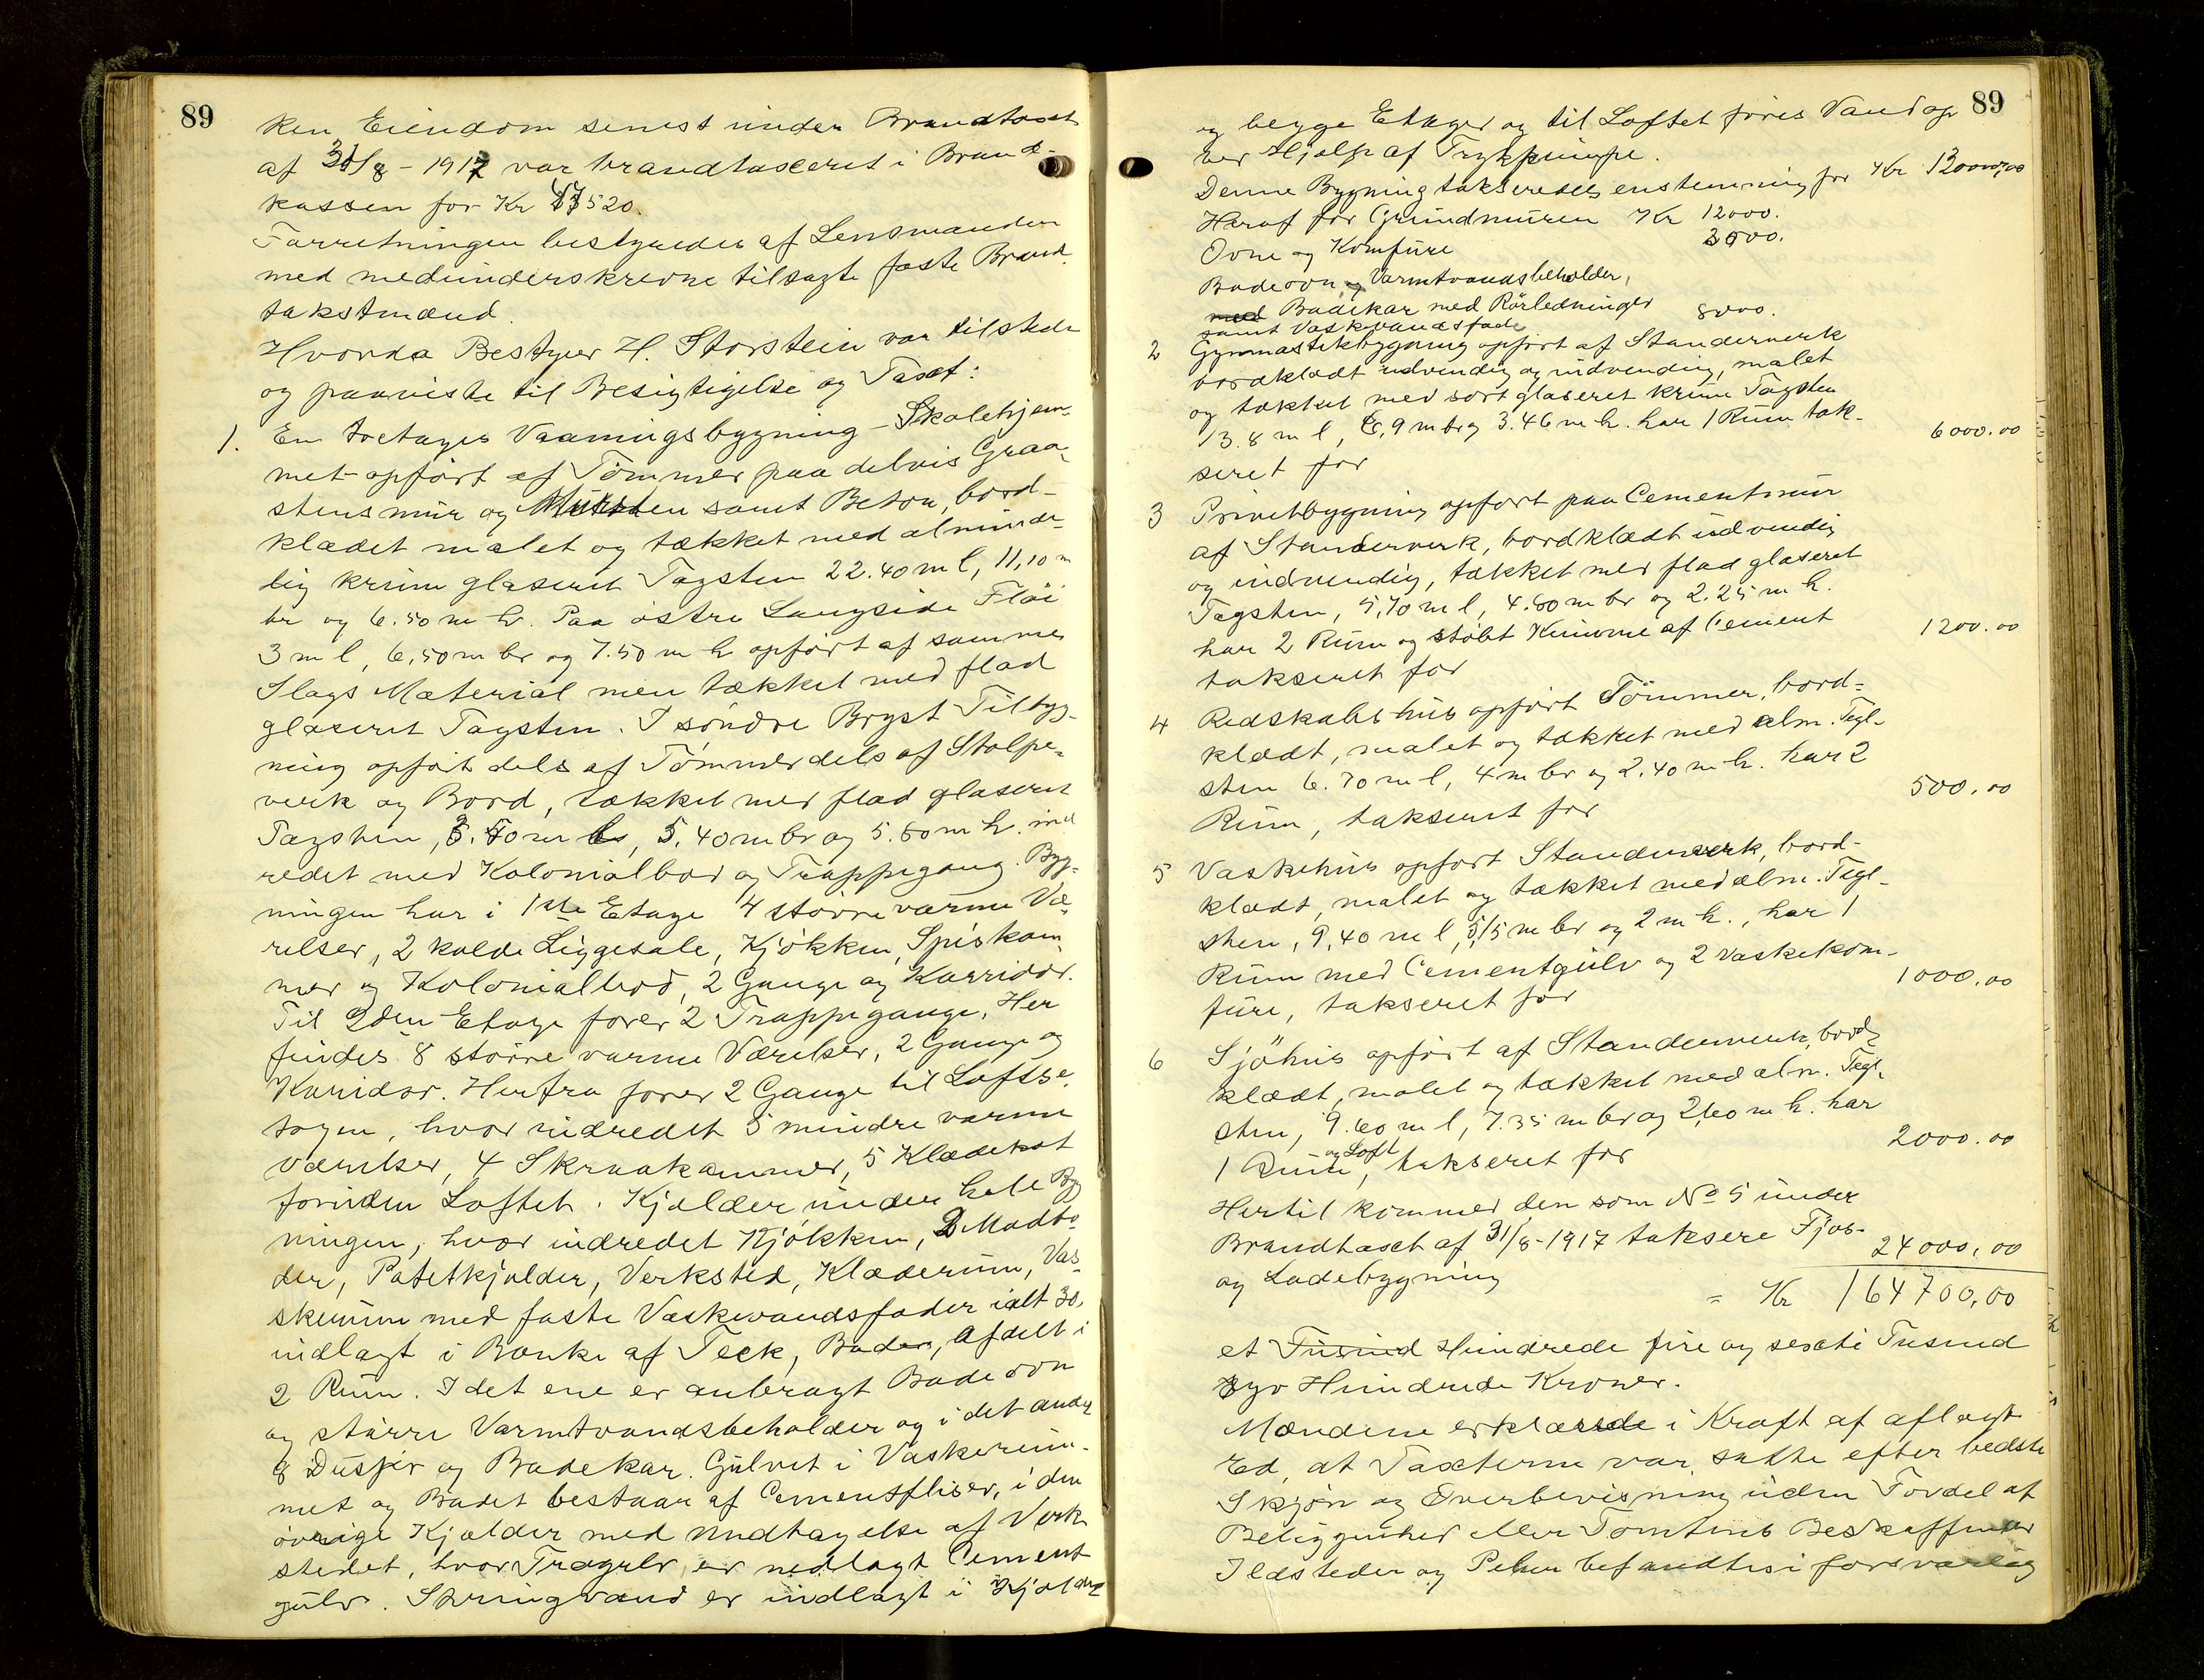 89
ken Eiendom senest under Brandtaxt
af 31/8 - 1917 var brandtaxeret i Brand-
kassen for Kr 47520.
Forretningen bestyredes af Lensmanden
med medunderskrevne tilsagte faste Brand-
takstmænd.
Hvorda Bestyrer H. Storstein var tilstede
og paaviste til Besigtigelse og Taxt:
1. En toetages Vaaningsbygning - Skolehjem-
met - opført af Tømmer paa delvis Graa-
stensmur og Mursten samt Beton, bord-
klædet malet og tækket med alminde-
lig krum glaseret Tagsten 22.40 m l, 11,10 m
br og 6.50 m h. Paa østre Langside Fløi
3 m l, 6,50 m br og 7.50 m h opført af samme
Slags Material men tækket med flad
glaseret Tagsten. I søndre Bryst Tilbyg-
ning opført dels af Tømmer dels af Stolpe-
verk og Bord, tækket med flad glaseret
Tagsten, 3.40 m l, 5,40 m br og 5.80 m h. ind
redet med Kolonialbod og Trappegang. Byg-
ningen har i 1ste Etage 4 større varme Væ-
relser, 2 kolde Liggesale, Kjøkken, Spiskam-
mer og Kolonialbod, 2 Gange og Korridor.
Til 2den Etage fører 2 Trappegange. Her
findes 8 større varme Værelser, 2 Gange og
Koridor. Herfra fører 2 Gange til Loftse-
tagen, hvor indredet 5 mindre varme
værelser, 4 Skraakammer, 5 Klædekot
foruden Loftet. Kjelder under hele Byg
ningen, hvor indredet Kjøkken, 2 Madbo-
der, Potetkjelder, Verksted, Klæderum, Vas-
skerum med faste Vaskevandsfader ialt 30,
indlagt i Bænke af Teck, Badex, Afdelt i
2 Rum. I det ene er anbragt Badeovn
og større Varmtvandsbeholder og i det andet
8 Dusjer og Badekar. Gulvet i Vaskerum-
met og Badet bestaar af Cementfliser, i den
øvrige Kjælder med Undtagelse af Verk-
stedet, hvor Trægulv, er nedlagt Cement
gulv. Springvand er indlagt i Kjælder
89
og begge Etager og til Loftet føres Vand op
ved Hjælp af Trykpumpe.
Denne Bygning takseredes enstemmig for Kr 130000,00
Heraf for Grundmuren Kr 12000.
Ovne og Komfure 3500.
Badeovn og Varmtvandsbeholder,
med Badekar med Rørledninger 8000.
samt Vaskevandsfade
2 Gymnastikbygning opført af Standerverk
bordklædt udvendig og indvendig, malet
og tækket med sort glaseret krum Tagsten
13.8 m l, 6,9 m br og 3.46 m h. har 1 Rum tak-
seret for 6000.00
3 Privetbygning opført paa Cementmur
af Standerverk, bordklædt udvendig
og indvendig, tækket med flad glaseret
Tagsten, 5,70 m l, 4.80 m br og 2.25 m h.
har 2 Rum og støbt Kumme af Cement
takseret for 1200.00
4 Redskabshus opført Tømmer, bord-
klædt, malet og tækket med alm. Tegl-
sten 6.70 m l, 4 m br og 2.40 m h. har 2
Rum, takseret for 500.00
5 Vaskehus opført Standerverk, bord-
klædt, malet og tækket med alm. Tegl-
sten, 9,40 m l, 5,15 m br og 2 m h., har 1
Rum med Cementgulv og 2 vaskekom-
fure, takseret for 1000.00
6 Sjøhus opført af Standerverk, bord-
klædt, malet og tækket med alm. Tegl-
sten, 9.60 m l, 7.35 m br og 2,60 m h. har
1 Rum og Loft, takseret for 2000.00
Hertil kommer den som No 5 under
Brandtaxt af 31/8-1917 taksere Fjøs-
og Ladebygning 24000,00
= Kr 164700,00
et Tusind Hundrede fire og sexti Tusind
syv Hundrede Kroner.
Mændene erklærede i Kraft af aflagt
Ed, at Taxterne var satte efter bedste
Skjøn og Overbevisning uden Fordel af
Beliggenhed eller Tomtens Beskaffenhed
Ildsteder og Peber befandtes i forsvarlig